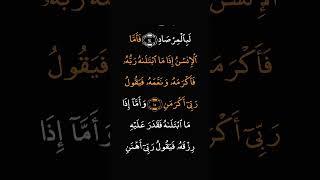 لَبِٱلْمِرْصَادِ ١٤ فَأَمَّا
ٱلْإِنسَٰنُ إِذَا مَا ٱبْتَلَىٰهُ رَبُّهُۥ
فَأَكْرَمَهُۥ وَنَعَّمَهُۥ فَيَقُولُ
رَبِّىٓ أَكْرَمَنِ ١٥ وَأَمَّآ إِذَا
مَا ٱبْتَلَىٰهُ فَقَدَرَ عَلَيْهِ
رِزْقَهُۥ فَيَقُولُ رَبِّىٓ أَهَٰنَنِ